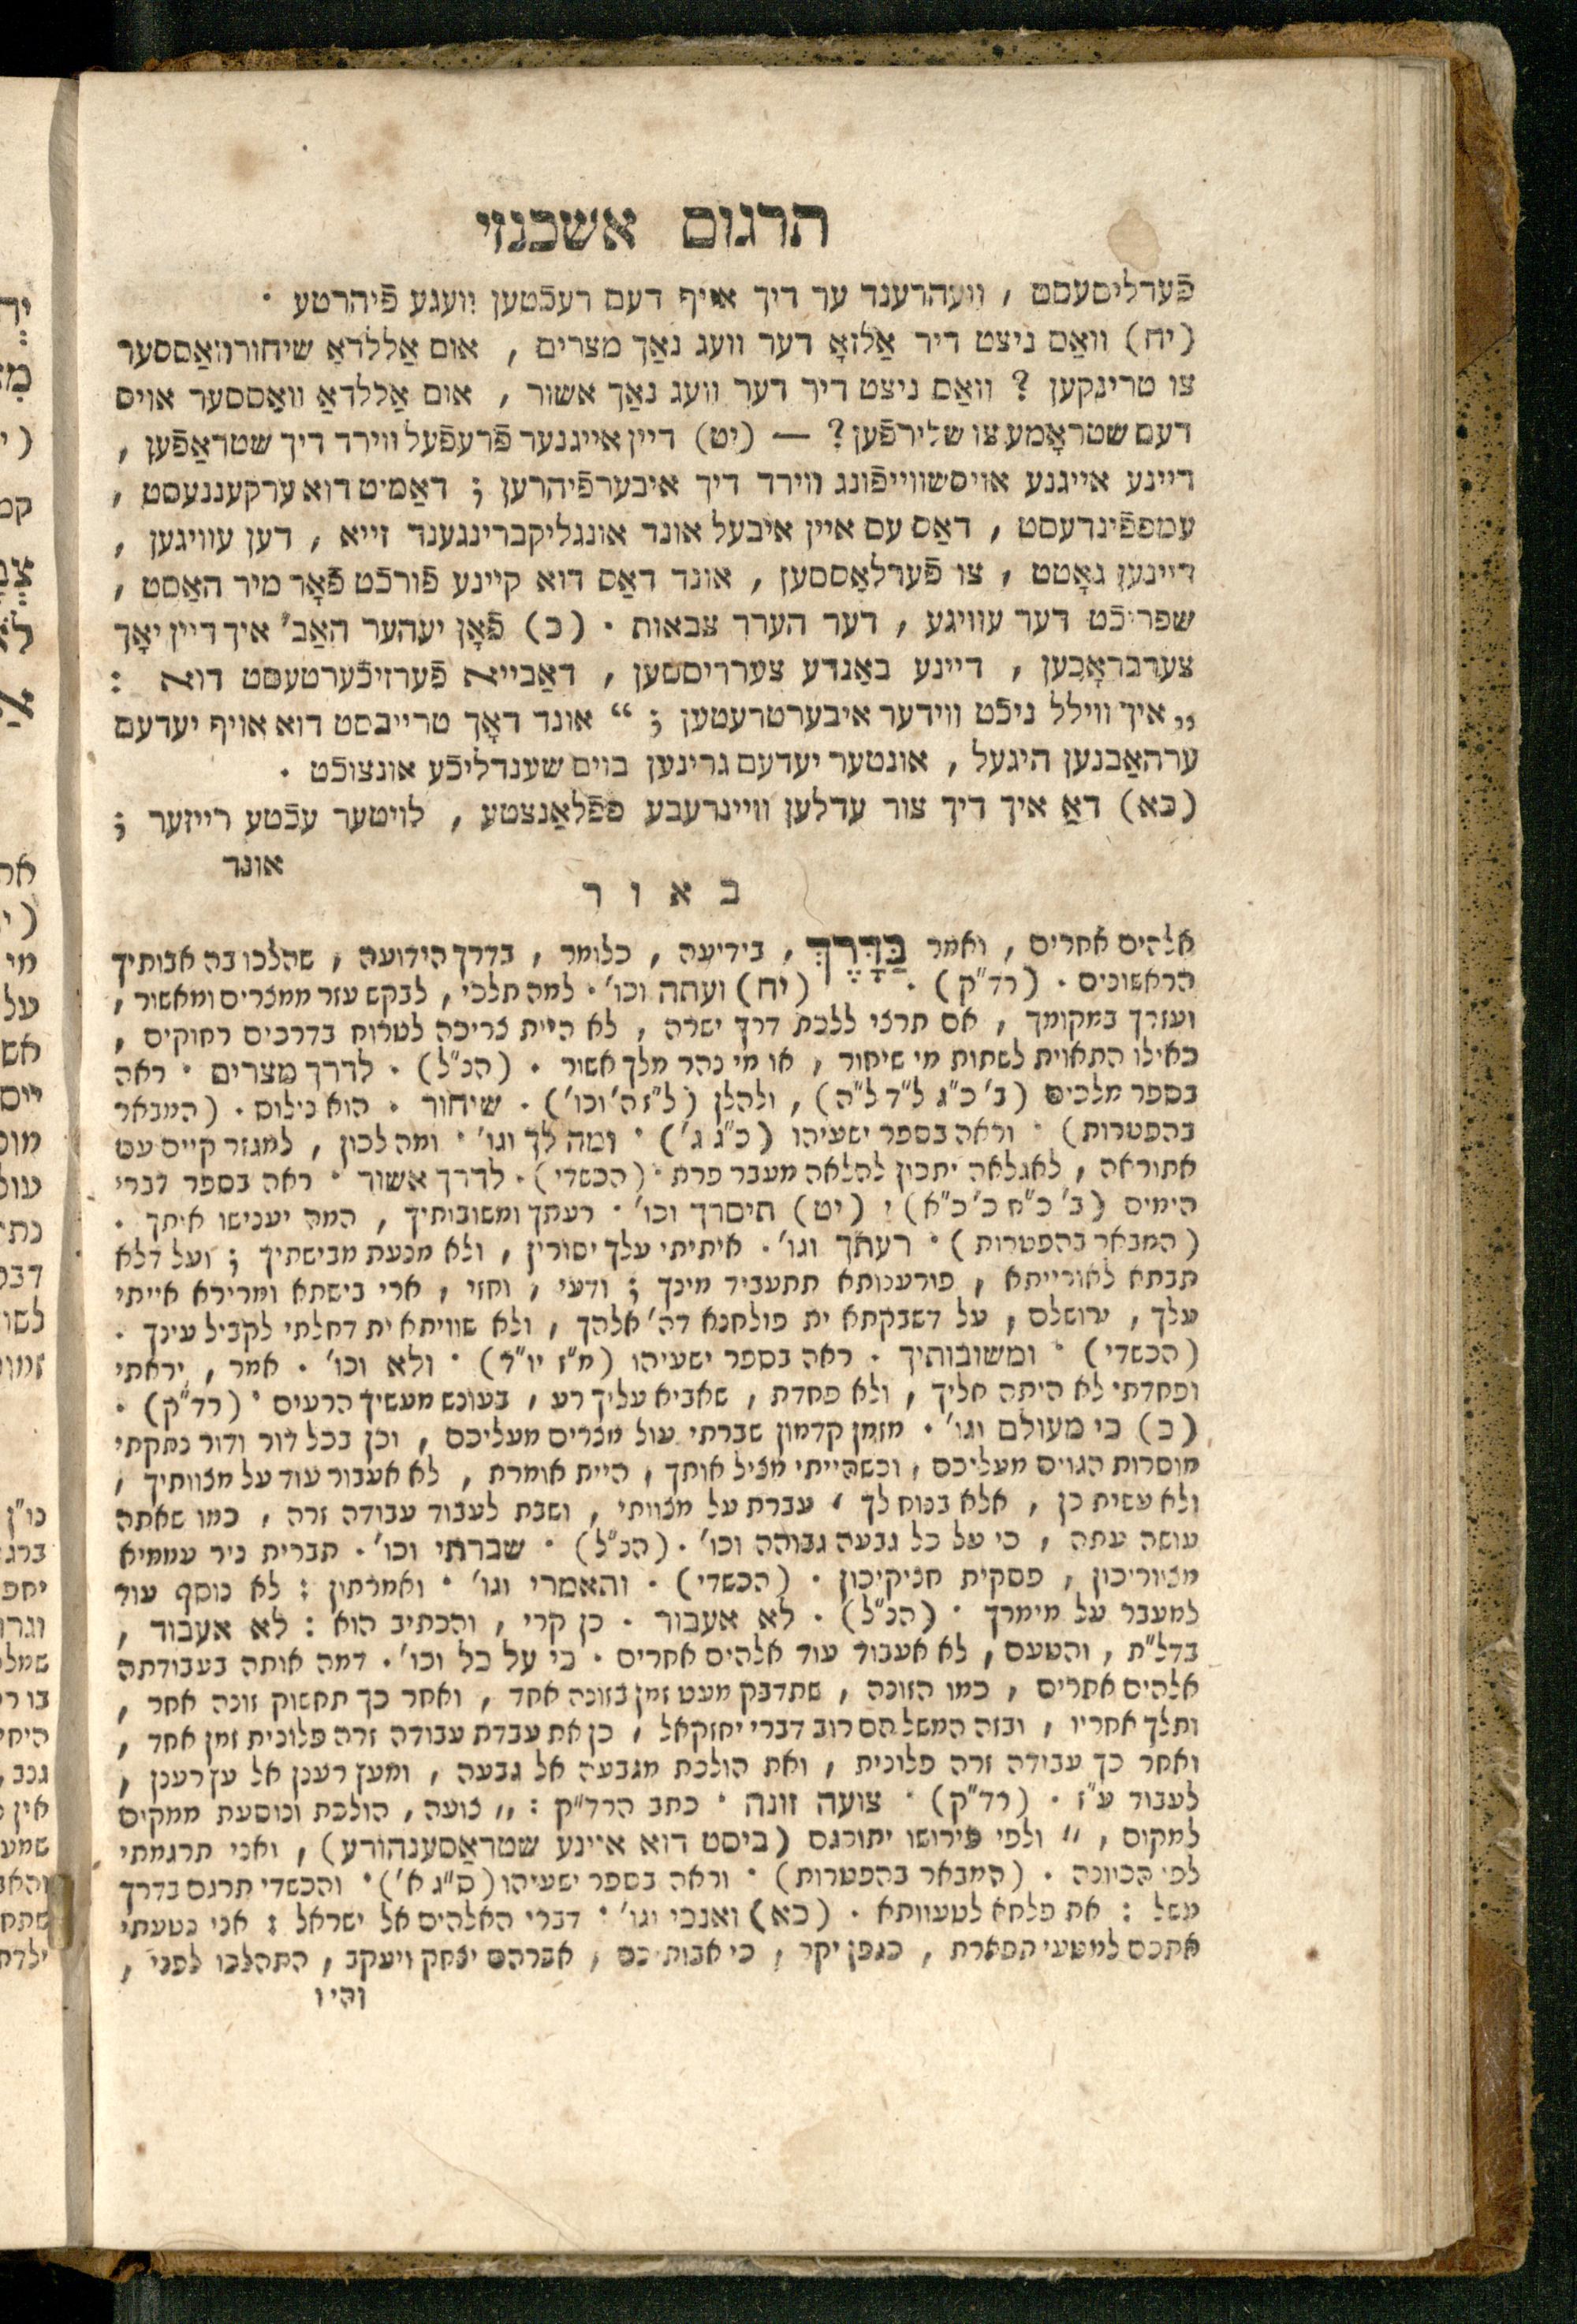 תרגום אשכנזי
פֿערליסעסט , וועהרענד ער דיך אויף דעם רעכֿטען וועגע פֿיהרטע .
(יח) וואַס ניצט דיר אַלזאָ דער וועג נאַך מצרים , אום אַללדאָ שיחורוואַססער
צו טרינקען ? וואַס ניצט דיר דער וועג נאַך אשור , אום אַללדאַ וואַססער אויס
דעם שטראָמע צו שלירפֿען ? — (יט) דיין אייגנער פֿרעפֿעל ווירד דיך שטראַפֿען ,
דיינע אייגנע אויסשווייפֿונג ווירד דיך איבערפֿיהרען ; דאַמיט דוא ערקעננעסט ,
עמפפֿינדעסט , דאַס עס איין איבעל אונד אונגליקברינגענד זייא , דען עוויגען ,
דיינען גאָטט , צו פֿערלאַססען , אונד דאַס דוא קיינע פֿורכֿט פֿאָר מיר האַסט ,
שפריכֿט דער עוויגע , דער הערר צבאות . (כ) פֿאָן יעהער האַב' איך דיין יאָך
צערבראָכען , דיינע באַנדע צערריססען , דאַבייא פֿערזיכֿערטעסט דוא :
„ איך ווילל ניכֿט ווידער איבערטרעטען ; “ אונד דאָך טרייבסט דוא אויף יעדעם
ערהאַבנען היגעל , אונטער יעדעם גרינען בוים שענדליכֿע אונצוכֿט .
(כא) דאַ איך דיך צור עדלען וויינרעבע פפֿלאַנצטע , לויטער עכֿטע רייזער ;
אונד
באור
אלהים אחרים , ואמר בַּדָּרֶךְ , בידיעה , כלומר , בדרך הידועה , שהלכו בה אבותיך
הראשונים . (רד"ק) . (יח) ועתה וכו' . למה תלכי , לבקש עזר ממצרים ומאשור ,
ועזרך במקומך , אם תרצי ללכת דרך ישרה , לא היית צריכה לטרוח בדרכים רחוקים ,
כאילו התאוית לשתות מי שיחור , או מי נהר מלך אשור . (הנ"ל) . לדרך מצרים . ראה
בספר מלכים (ב' כ"ג ל"ד ל"ה) , ולהלן (ל"ז ה' וכו') . שיחור . הוא נילוס . (המבאר
בהפטרות) . וראה בספר ישעיהו (כ"ג ג') . ומה לך וגו' . ומה לכון , למגזר קיים עם
אתוראה , לאגלאה יתכון להלאה מעבר פרת . (הכשדי) . לדרך אשור . ראה בספר דברי
הימים (ב' כ"ח כ' כ"א) ; (יט) תיסרך וכו' . רעתך ומשובותיך , המה יענישו איתך .
(המבאר בהפטרות) . רעתך וגו' . איתיתי עלך יסורין , ולא מנעת מבישתיך ; ועל דלא
תבתא לאורייתא , פורענותא תתעביד מינך ; ודעי , וחזי , ארי בישתא ומרירא אייתי
עלך , ירושלם , על דשבקתא ית פולחנא דה' אלהך , ולא שוויתא ית דחלתי לקביל עינך .
(הכשדי) . ומשובותיך . ראה בספר ישעיהו (מ"ז יו"ד) . ולא וכו' . אמר , יראתי
ופחדתי לא היתה אליך , ולא פחדת , שאביא עליך רע , בעונש מעשיך הרעים . (רד"ק) .
(כ) כי מעולם וגו' . מזמן קדמון שברתי עול מצרים מעליכם , וכן בכל דור ודור נתקתי
מוסרות הגוים מעליכם , וכשהייתי מציל אותך , היית אומרת , לא אעבור עוד על מצוותיך ,
ולא עשית כן , אלא בנוח לך , עברת על מצוותי , ושבת לעבוד עבודה זרה , כמו שאתה
עושה עתה , כי על כל גבעה גבוהה וכו' . (הנ"ל) . שברתי וכו' . תברית ניר עממיא
מצוריכון , פסקית חניקיכון . (הכשדי) . והאמרי וגו' . ואמרתון : לא נוסף עוד
למעבר על מימרך . (הנ"ל) . לא אעבור . כן קרי , והכתיב הוא : לא אעבוד ,
בדל"ת , והטעם , לא אעבוד עוד אלהים אחרים . כי על כל וכו' . דמה אותה בעבודתה
אלהים אחרים , כמו הזונה , שתדבק מעט זמן בזונה אחד , ואחר כך תחשוק זונה אחר ,
ותלך אחריו , ובזה המשל הם רוב דברי יחזקאל , כן את עבדת עבודה זרה פלונית זמן אחד ,
ואחר כך עבידה זרה פלונית , ואת הולכת מגבעה אל גבעה , ומעץ רענן אל עץ רענן ,
לעבוד ע"ז . (רד"ק) . צועה זונה . כתב הרד"ק : „ צועה , הולכת ונוסעת ממקום
למקום , “ ולפי פירושו יתורגם (ביסט דוא איינע שטראַסענהורע) , ואני תרגמתי
לפי הכיונה . (המבאר בהפטרות) . וראה בספר ישעיהו (ס"ג א') . והכשדי תרגם בדרך
משל : את פלחא לטעוותא . (כא) ואנכי וגו' . דברי האלהים אל ישראל : אני נטעתי
אתכם למטעי תפארת , כגפן יקר , כי אבותיכם , אברהם יצחק ויעקב , התהלכו לפני ,
והיו